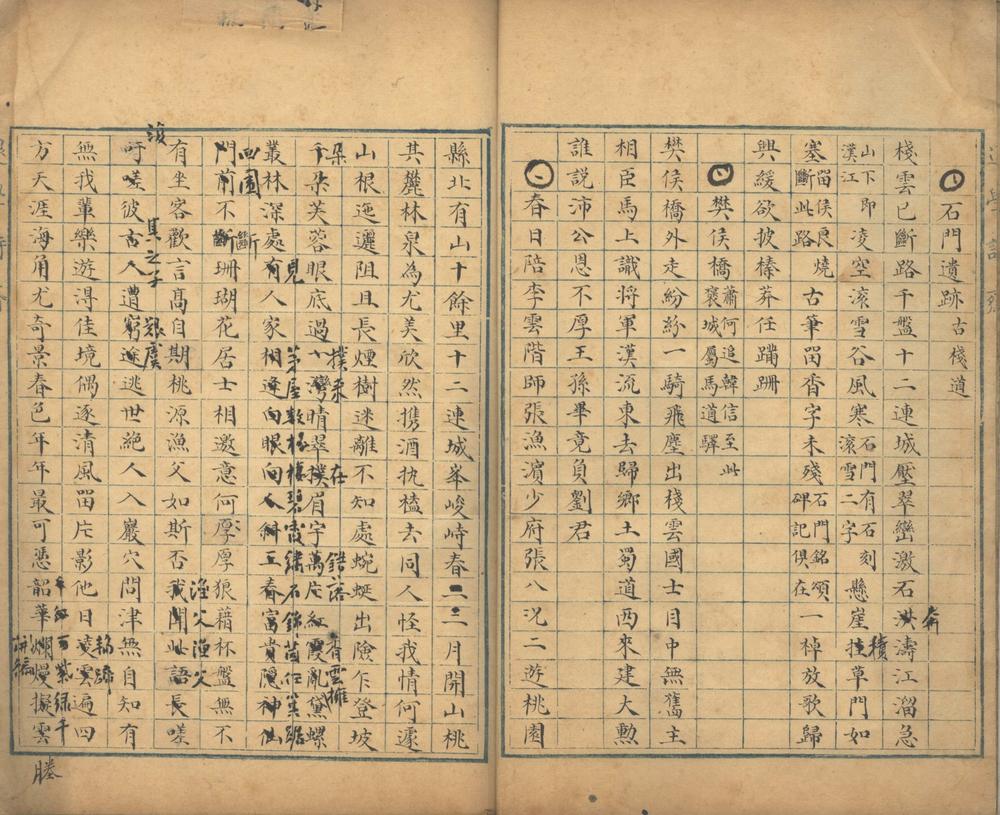 石門遺跡 古棧道
棧雲已斷路千盤十二連城壓翠巒激石洪濤江溜急
漢江山下即凌空滾雪谷風寒石門有石刻滾雪二字懸崖掛草門如
塞留侯良燒斷此路古筆留香字未殘石門銘頌碑記俱在一棹放歌歸
興緩欲披榛莽任蹣跚
樊侯橋 蕭何追韓信至此褒城屬馬道驛
樊侯橋外走紛紛一騎飛塵出棧雲國士目中無舊主
相臣馬上識將軍漢流東去歸鄉土蜀道西來建大勲
誰說沛公恩不厚王孫畢竟負劉君
春日陪李雲階師張漁濱少府張八況二遊桃園
縣北有山十餘里十二連城峯峻峙春二三月開山桃
其麓林泉為尤美欣然携酒执榼去同人怪我情何遽
山根迤邐阻且長煙樹迷離不知處蜿蜒出險乍登坡
千朵芙蓉眼底過八灣晴翠撲眉宇萬片紅霞亂黛螺
叢林深處有人家相逢向眼向人斜
門前不斷珊瑚花居士相邀意何厚厚狼藉杯盤無不
有坐客歡言高自期桃源漁父如斯否我聞此語長嗟
吁嗟彼古人遭窮途逃世絶人入巖穴問津無自知有
無我輩樂遊得佳境偶逐清風留片影他日凌雲遍四
方天涯海角尤奇景春色年年最可憑韶華爛熳擬雲
勝